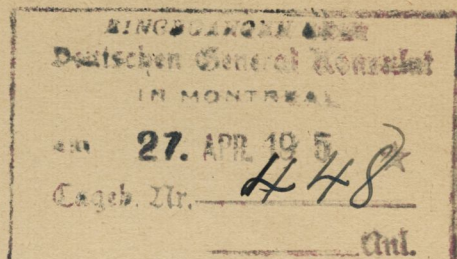 EINGEGANGEN BEIM
Deutschen General Konsulat
IN MONTREAL
am 27. APR. 19 5
Tageb. Nr. 448
Anl.